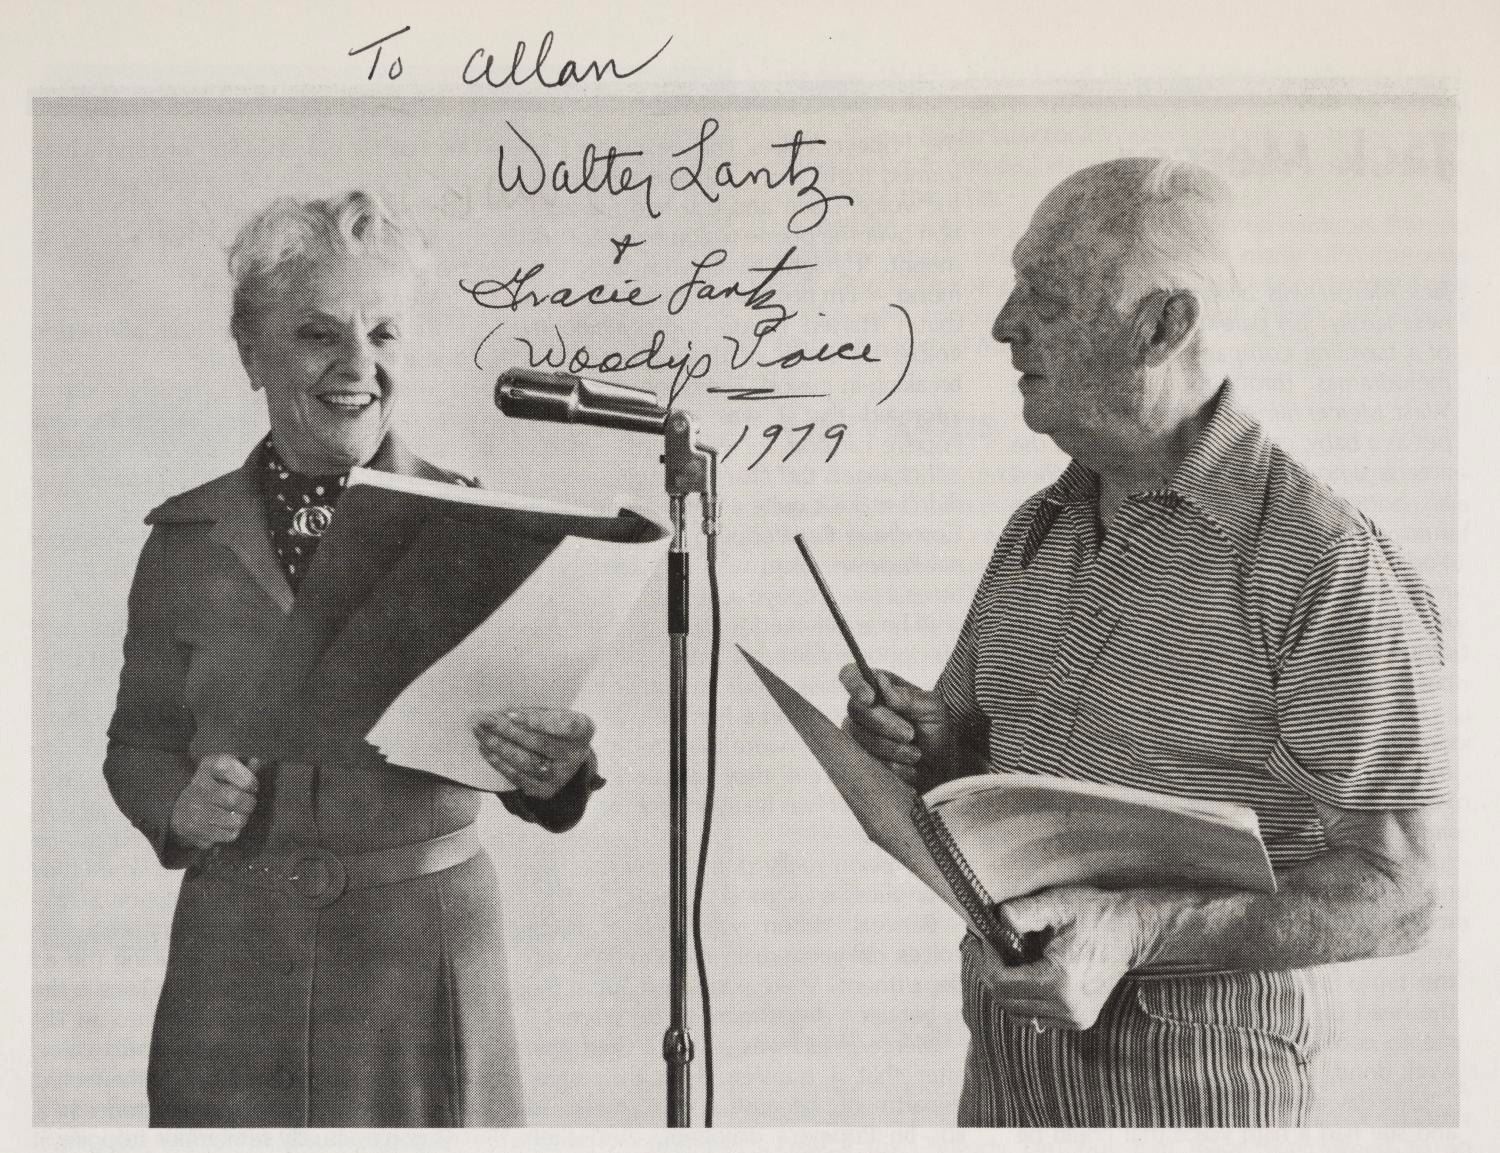 To Allan
Walter Lantz
+
Gracie Lantz
(Woody's Voice)
1979